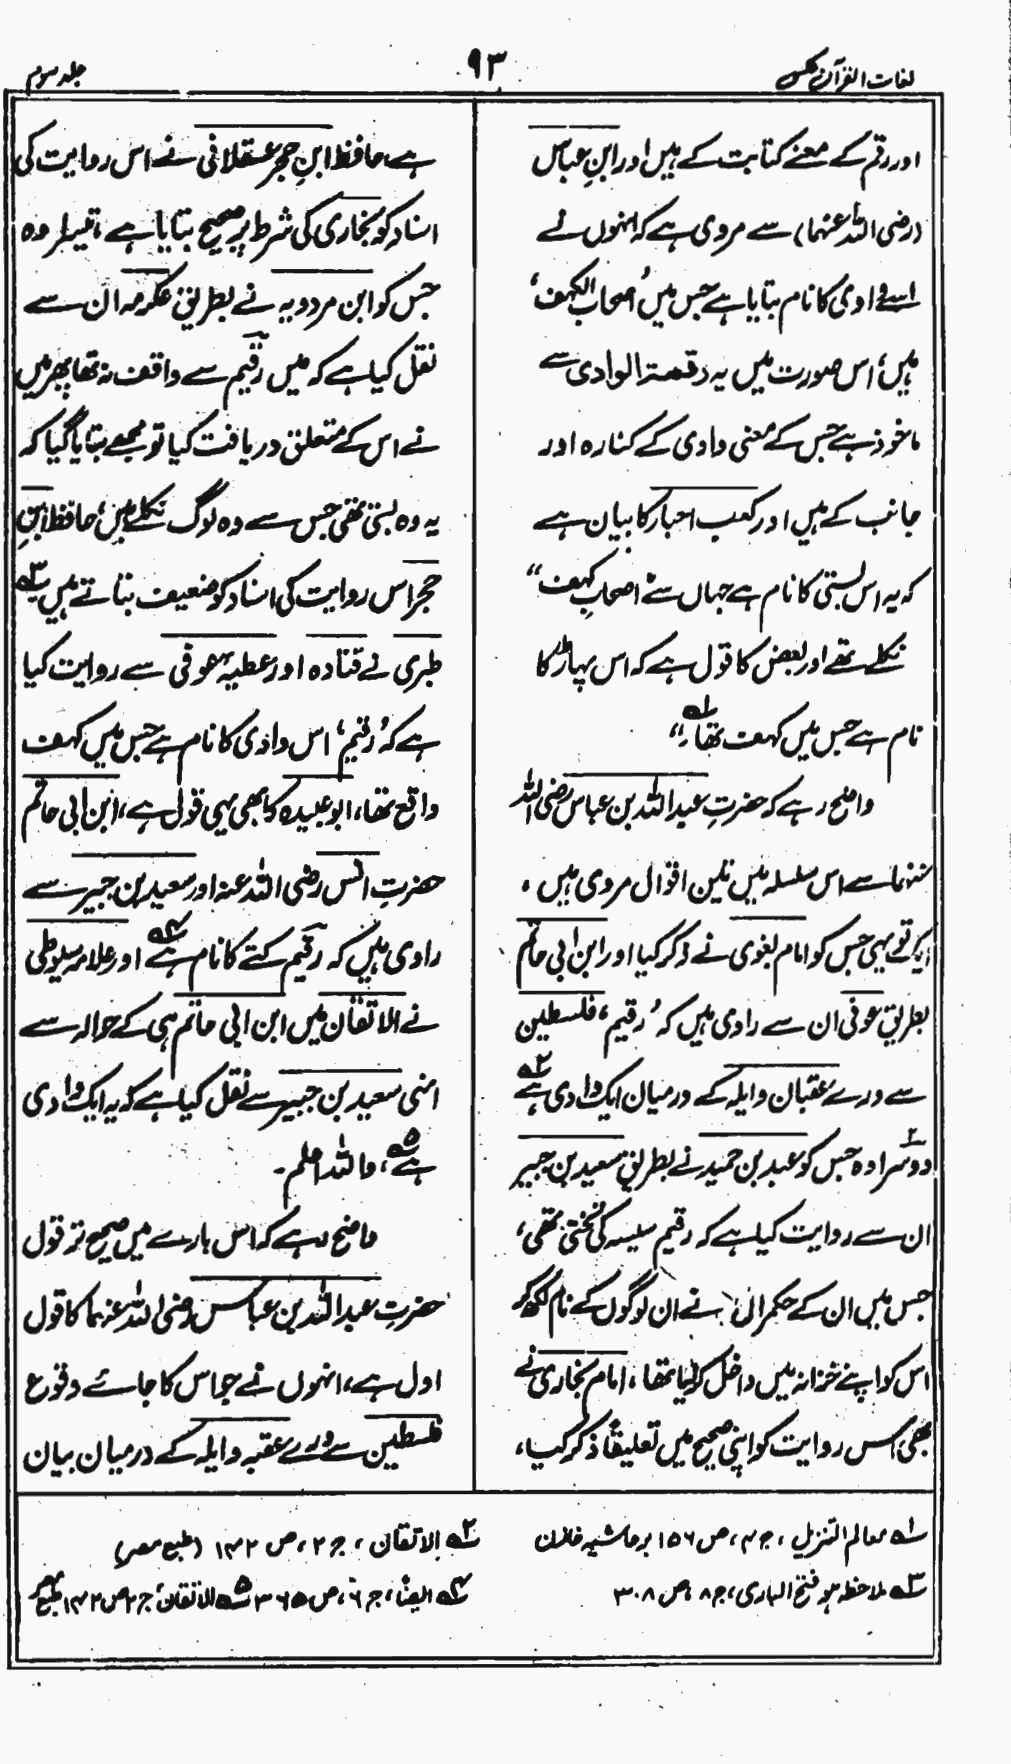 لغات القرآن
۹۳
جلد سوم
اور رقم کے معنے کتابت کے ہیں اور ابنِ عباس
(رضی اللہ عنہما) سے مروی ہے کہ انہوں نے
اسے وادی کا نام بتایا ہے جس میں ’اصحاب الکہف‘
ہیں، اس صورت میں یہ رقمۃ الوادی سے
ماخوذ ہے جس کے معنی وادی کے کنارہ اور
جانب کے ہیں اور کعب احبار کا بیان ہے
کہ یہ اس بستی کا نام ہے جہاں سے ”اصحابِ کہف“
نکلے تھے اور بعض کا قول ہے کہ اس پہاڑ کا
نام ہے جس میں کہف تھا۔“ ؎۱
واضح رہے کہ حضرتِ عبد اللہ بن عباس رضی اللہ
عنہما سے اس سلسلہ میں تین اقوال مروی ہیں،
ایک تو یہی جس کو امام بغوی نے ذکر کیا اور ابن ابی حاتم
بطریقِ عوفی ان سے راوی ہیں کہ ’رقیم‘ فلسطین
سے ورے عقبان و ایلہ کے درمیان ایک وادی ہے ؎۲
دوسرا وہ جس کو عبد بن حمید نے بطریقِ سعید بن جبیر
ان سے روایت کیا ہے کہ رقیم سیسہ کی تختی تھی،
جس میں ان کے حکمراں نے ان لوگوں کے نام لکھ کر
اس کو اپنے خزانہ میں داخل کر لیا تھا، امام بخاری نے
بھی اس روایت کو اپنی صحیح میں تعلیقًا ذکر کیا،
ہے، حافظ ابنِ حجر عسقلانی نے اس روایت کی
اسناد کو بخاری کی شرط پر صحیح بتایا ہے، تیسرا وہ
جس کو ابن مردویہ نے بطریق عکرمہ ان سے
نقل کیا ہے کہ میں رقیم سے واقف نہ تھا پھر میں
نے اس کے متعلق دریافت کیا تو مجھے بتایا گیا کہ
یہ وہ بستی تھی جس سے وہ لوگ نکلے ہیں، حافظ ابنِ
حجر اس روایت کی اسناد کو ضعیف بتاتے ہیں ؎۳
طبری نے قتادہ اور عطیہ عوفی سے روایت کیا
ہے کہ ’رقیم‘ اس وادی کا نام ہے جس میں کہف
واقع تھا، ابو عبیدہ کا بھی یہی قول ہے، ابن ابی حاتم
حضرتِ انس رضی اللہ عنہ اور سعید بن جبیر سے
راوی ہیں کہ رقیم کتے کا نام ہے ؎۴ اور علامہ سیوطی
نے الاتقان میں ابن ابی حاتم ہی کے حوالہ سے
انہی سعید بن جبیر سے نقل کیا ہے کہ یہ ایک وادی
ہے ؎۵، واللہ اعلم۔
واضح رہے کہ اس بارے میں صحیح تر قول
حضرتِ عبد اللہ بن عباس رضی اللہ عنہما کا قول
اول ہے، انہوں نے جو اس کا جائے وقوع
فلسطین سے ورے عقبہ و ایلہ کے درمیان بیان
؎۱ معالم التنزیل، ج ۴، ص ۱۵۶ بر حاشیہ خازن
؎۲ الاتقان، ج ۲، ص ۱۴۲ (طبع مصر)
؎۳ ملاحظہ ہو فتح الباری، ج ۸، ص ۳۰۸
؎۴ ایضًا، ج ۶، ص ۳۶۵ ؎۵ الاتقان، ج ۲ ص ۱۴۲ طبع مصر